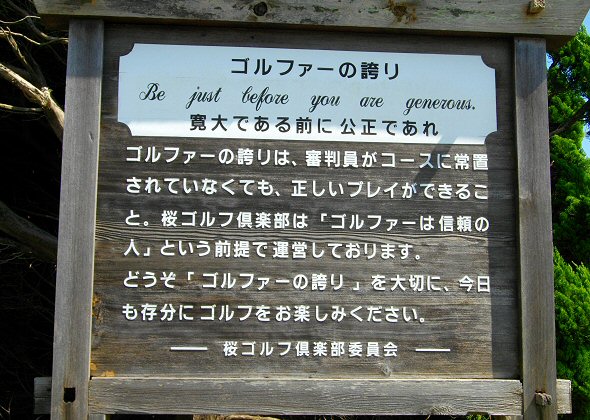 ゴルファーの誇り
Be just before you are generous.
寛大である前に公正であれ
ゴルファーの誇りは、審判員がコースに常置
されていなくても、正しいプレイができるこ
と。桜ゴルフ倶楽部は「ゴルファーは信頼の
人」という前提で運営しております。
どうぞ「ゴルファーの誇り」を大切に、今日
も存分にゴルフをお楽しみください。
── 桜ゴルフ倶楽部委員会 ──